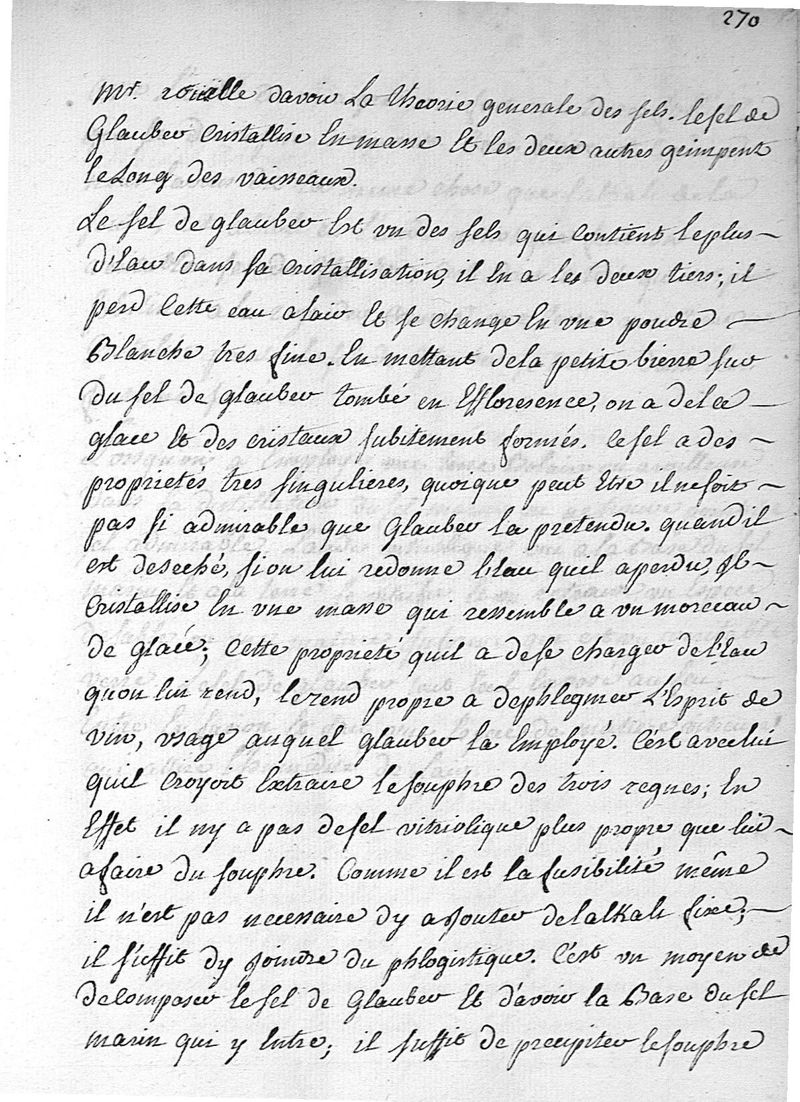 270
Mr. rouëlle davoir La theorie generale des sels. le sel de
Glauber Cristallise En masse Et les deux autres grimpent
le Long des vaisseaux.
Le sel de glauber Est un des sels qui Contient le plus
d'Eau dans sa Cristallisation, il En a les deux tiers; il
perd Cette eau alair Et se change En une poudre
Blanche tres fine. En mettant de la petite bierre sur
Du sel de glauber tombé en Efflorescence, on a de la
glace Et des cristaux subitement formés. Ce sel a des
proprietés tres singulieres, quoique peut Etre il ne soit
pas si admirable que Glauber la pretendu. quand il
est deseché, si on lui redonne l'Eau quel a perdu, il
Cristallise En une masse qui ressemble a un morceau
de glace; Cette proprieté quil a de se charger de l'Eau
quon lui rend, le rend propre a dephlegmer L'Esprit de
vin, usage auquel Glauber la Employé. C'est avec lui
quil Croyoit Extraire le souphre des trois regnes; En
Effet il ny a pas de sel vitriolique plus propre que lui
a faire du souphre. Comme il est la fusibilité même
il n'est pas necessaire dy ajouter de lalkali fixe;
il suffit dy joindre du phlogistique. C'est un moyen de
Decomposer le sel de Glauber Et d'avoir la Base du sel
marin qui y Entre; il suffit de precipiter le souphre